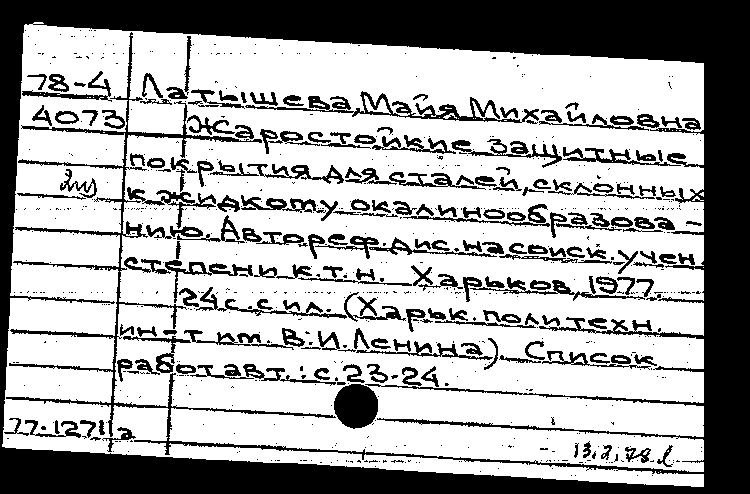 78-4 Латышева, Майя Михайловна
4073 Жаростойкие защитные
покрытия для сталей, склонных
к жидкому окалинообразова-
нию. Автореф. дис. на соиск. учен.
степени к.т.н. Харьков, 1977.
24с. с ил. (Харьк. политехн.
ин-т им. В.И.Ленина). Список
работ авт.: с. 23-24.
77-12711а
13.2.78